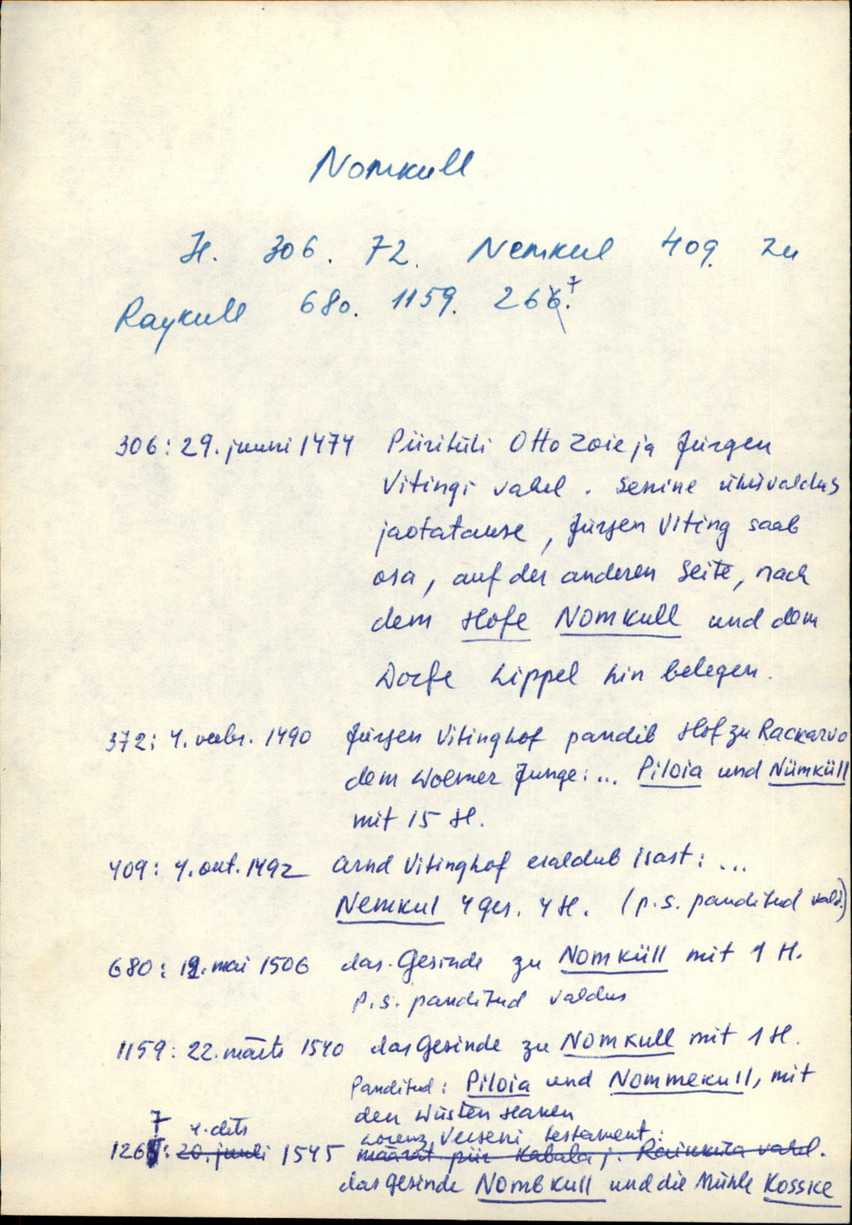 Nomkull
H. 306. 72. Nemkul 409. zu
Raykull 680. 1159. 267.
306: 29. juuni 1474 Piiritüli Otto Zoie ja Jürgen
Vitingi vahel. Senine ühisvaldus
jaotatakse, Jürgen Viting saab
osa, auf der anderen Seite, nach
dem Hofe Nomkull und dem
Dorfe Lippel hin belegen.
372: 4. veebr. 1490 Jürgen Vitinghof pandib Hof zu Rackarvo
dem Woemer Junge: ... Piloia und Nümküll
mit 15 H.
409: 4. okt. 1492 Arnd Vitinghof eraldub isast: ...
Nemkul 4 ges. 4 H. (p.s. panditud vald.)
680: 12. mai 1506 das Gesinde zu Nomküll mit 1 H.
p.s. panditud valdus
1159: 22. märts 1540 das Gesinde zu Nomkull mit 1 H.
Panditud: Piloia und Nommekull, mit
den wüsten Haken
7 4. dets Lorenz Verseni testament:
126: 20. juuni 1545 määrat piir Kabala j. Raikküla vahel.
das Gesinde Nombkull und die Mühle Kosske